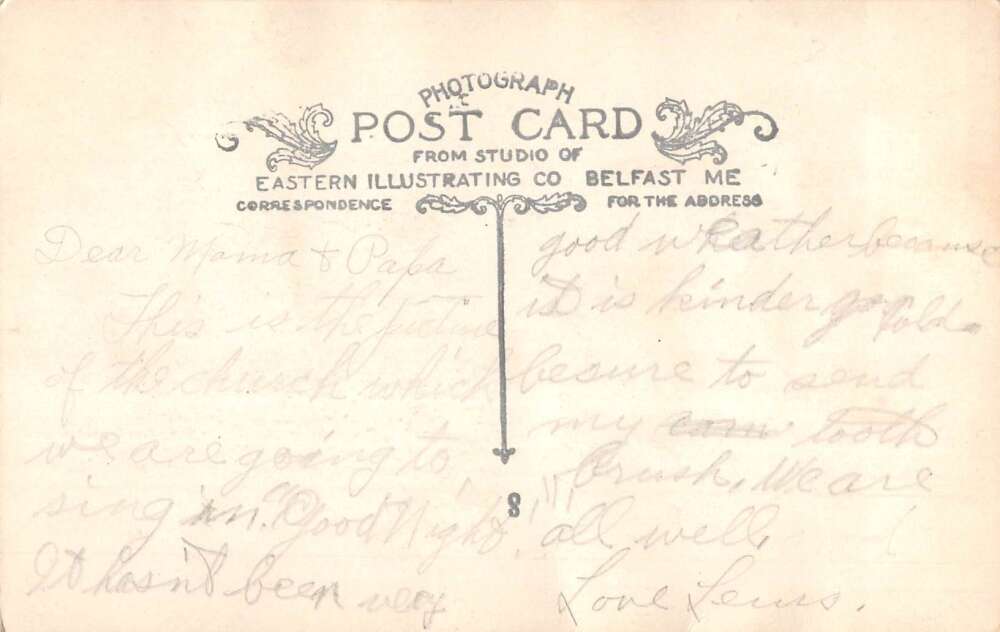 PHOTOGRAPH
POST CARD
FROM STUDIO OF
EASTERN ILLUSTRATING CO BELFAST ME
CORRESPONDENCE
FOR THE ADDRESS
Dear Mama & Papa
This is the picture
of the church which
we are going to
sing in. "Good Night"
It hasn't been very
good wheather because
it is kinder cold.
besure to send
my tooth
brush, We are
all well,
Love Lewis.
8